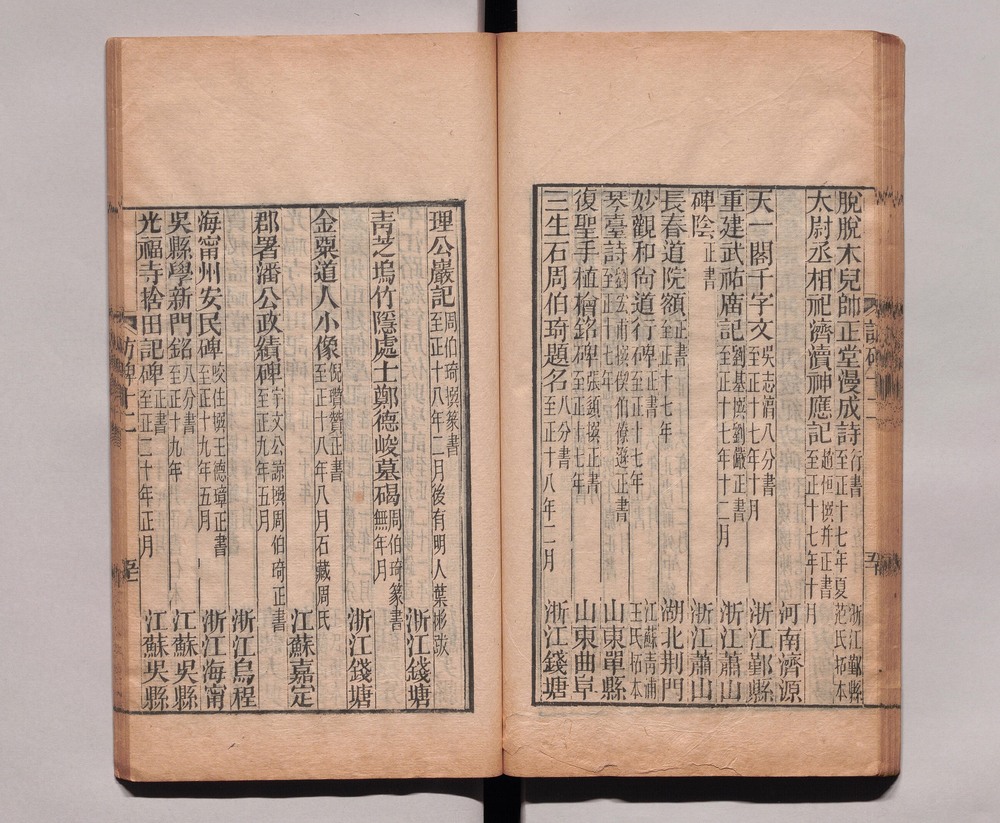 脫脫木兒帥正堂漫成詩行書至正十七年夏浙江鄞縣范氏拓本
太尉丞相祀濟瀆神應記趙恒撰并正書至正十七年十月河南濟源
天一閣千字文吳志淯八分書至正十七年十月浙江鄞縣
重建武祐廟記劉基撰劉儼正書至正十七年十二月浙江蕭山
碑陰正書浙江蕭山
長春道院額正書至正十七年湖北荆門
妙觀和尙道行碑正書至正十七年江蘇青浦王氏拓本
琴臺詩劉玄浦接撰伯僚遜正書至正十七年山東單縣
復聖手植檜銘碑張頟撰正書至正十七年山東曲阜
三生石周伯琦題名八分書至正十八年二月浙江錢塘
訪碑十二
理公巖記周伯琦撰篆書至正十八年二月後有明人葉彬跋浙江錢塘
青芝塢竹隱處士鄭德峻墓碣周伯琦篆書無年月浙江錢塘
金粟道人小像倪瓚贊正書至正十八年八月石藏周氏江蘇嘉定
郡署潘公政績碑宇文公諒撰周伯琦正書至正九年五月浙江烏程
海甯州安民碑咬住撰王德璋正書至正十九年五月浙江海甯
吳縣學新門銘八分書至正十九年江蘇吳縣
光福寺捨田記碑正書至正二十年正月江蘇吳縣
訪碑十二